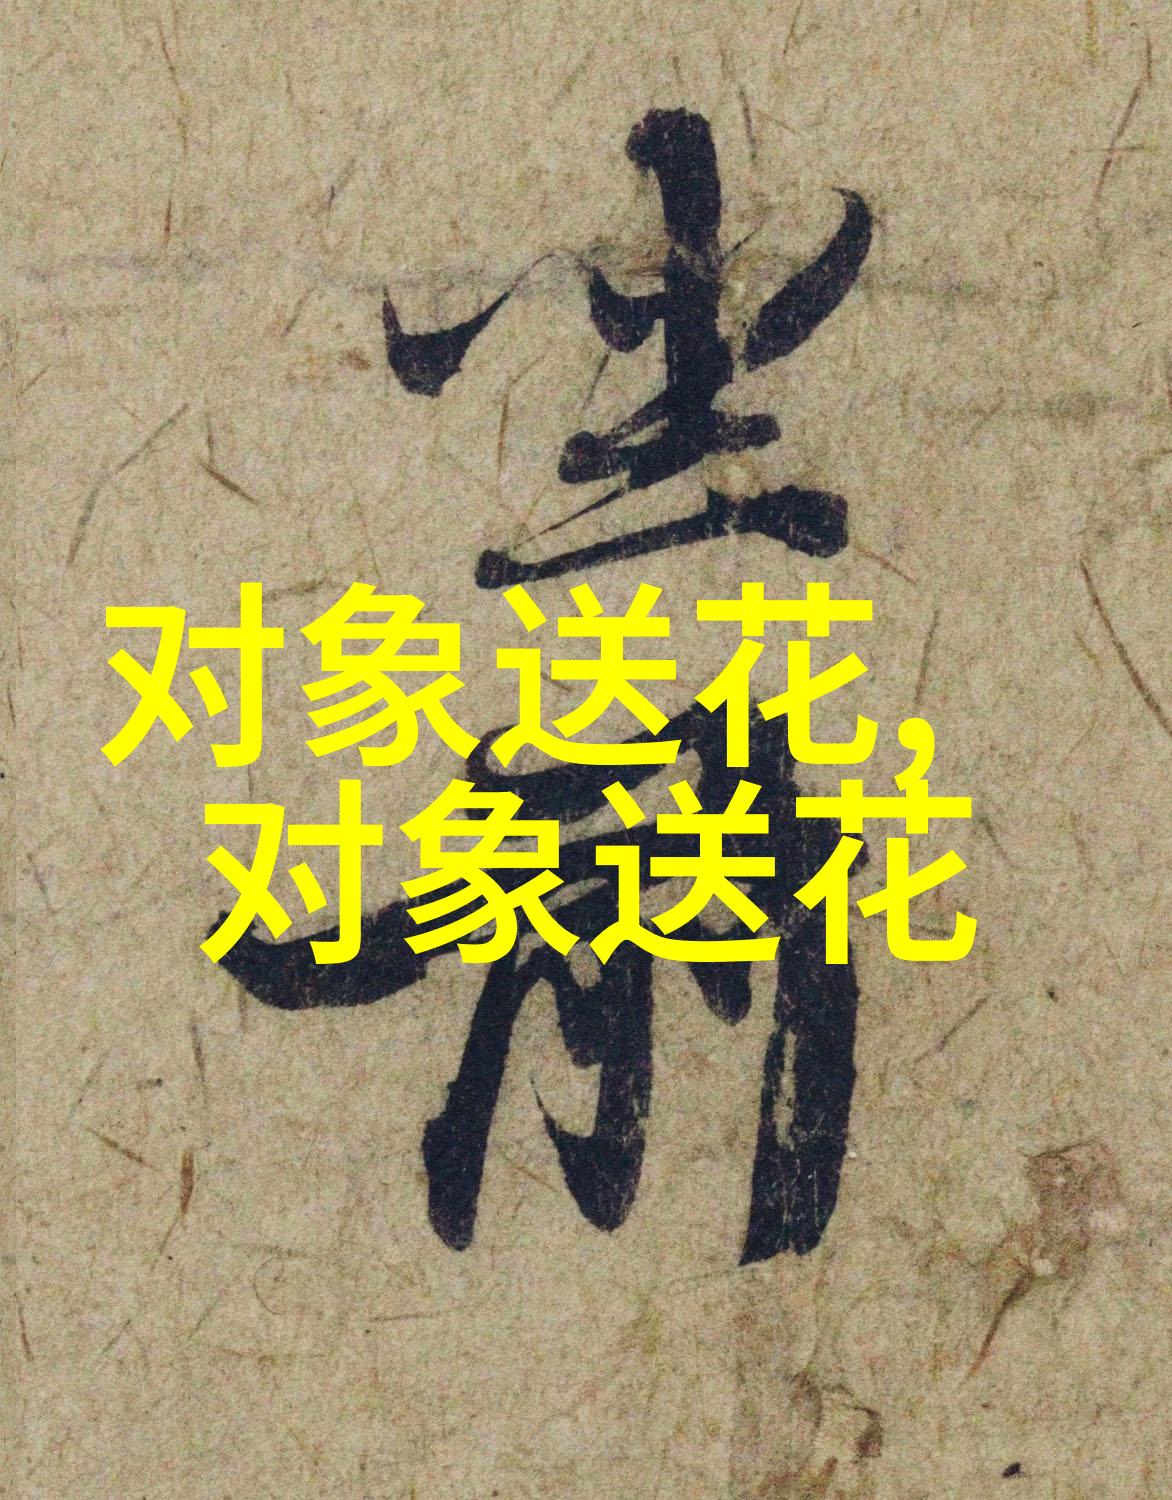 对象送花,
对象送花